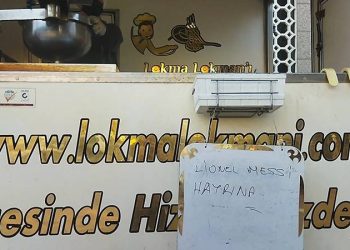 Lokma Lokmani
www.lokmalokmani.com
LİONEL MESSİ
HAYRINA
esinde Hiz
zde